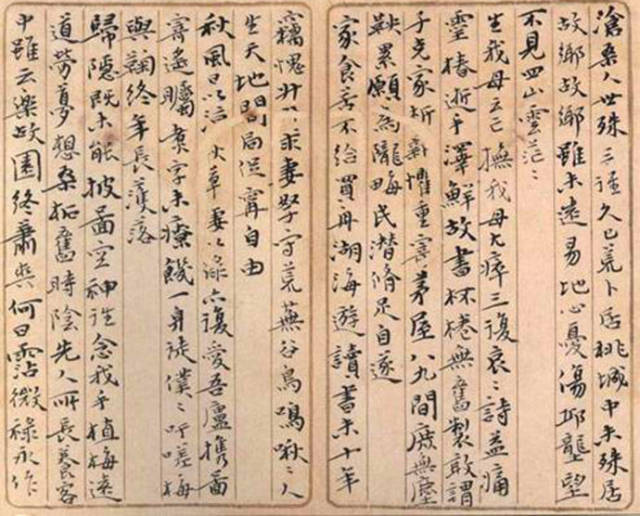 滄桑人世殊三徑久已荒卜居桃城中未殊居
故鄉故鄉雖未遠易地心憂傷邱壟望
不見四山雲茫〻
生我母立已撫我母大瘁三復哀〻詩益痛
靈椿逝手澤鮮故書杯棬無舊製敢謂
子克家析薪懼重寄茅屋八九間庶無塵
鞅累願為隴畝民潛脩足自遂
家食苦不給買舟湖海遊讀書未十年
竊愧壯 求妻孥守荒蕪谷鳥鳴啾〻人
生天地間局促寧自由
秋風日以涼 草萋以綠亦復愛吾廬攜畜
寄遙矚煮字未療飢一身徒僕〻吁嗟梅
與鞠終年長落落
歸隱既未能披圖空神往念我手植梅遠
道勞夢想桑柘舊時陰先人所長養客
中雖云樂故園終肅爽何日霑微祿永作